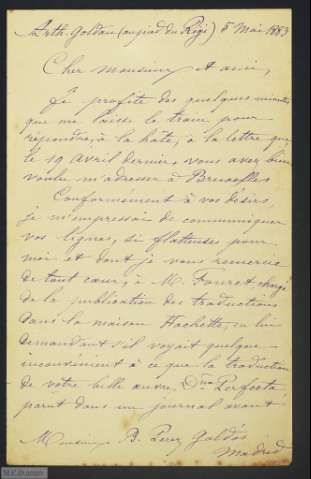 Arth. Goldau (au pied du Rigi) 8 Mai 1883
Cher monsieur et ami,
Je profite des quelques minutes
que me laisse le train pour
répondre, à la hâte, à la lettre que
le 19 avril dernier vous avez bien
voulu m'adresser à Bruxelles.
Conformément à vos désirs,
je m'empressai de communiquer
vos lignes, si flatteuses pour
moi et dont je vous remercie
de tout cœur, à M. Fouret, chargé
de la publication des traductions
dans la maison Hachette, en lui
demandant s'il voyait quelque
inconvénient à ce que la traduction
de votre belle œuvre, Dña Perfecta,
parût dans un journal avant
Monsieur B. Perez Galdós
Madrid